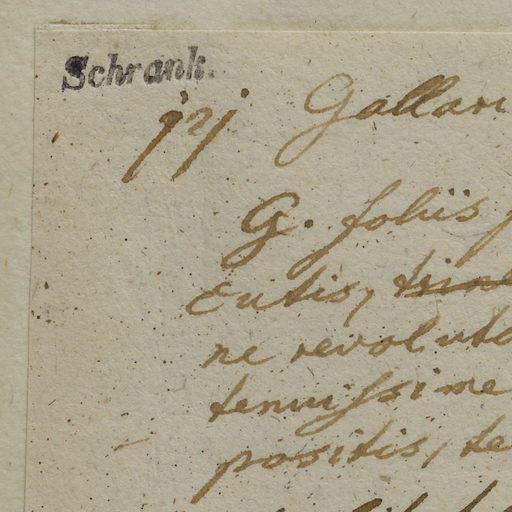 Schrank.
Gallari
G. foliis
entis,
ne revoluto
tenuissime
positis, te